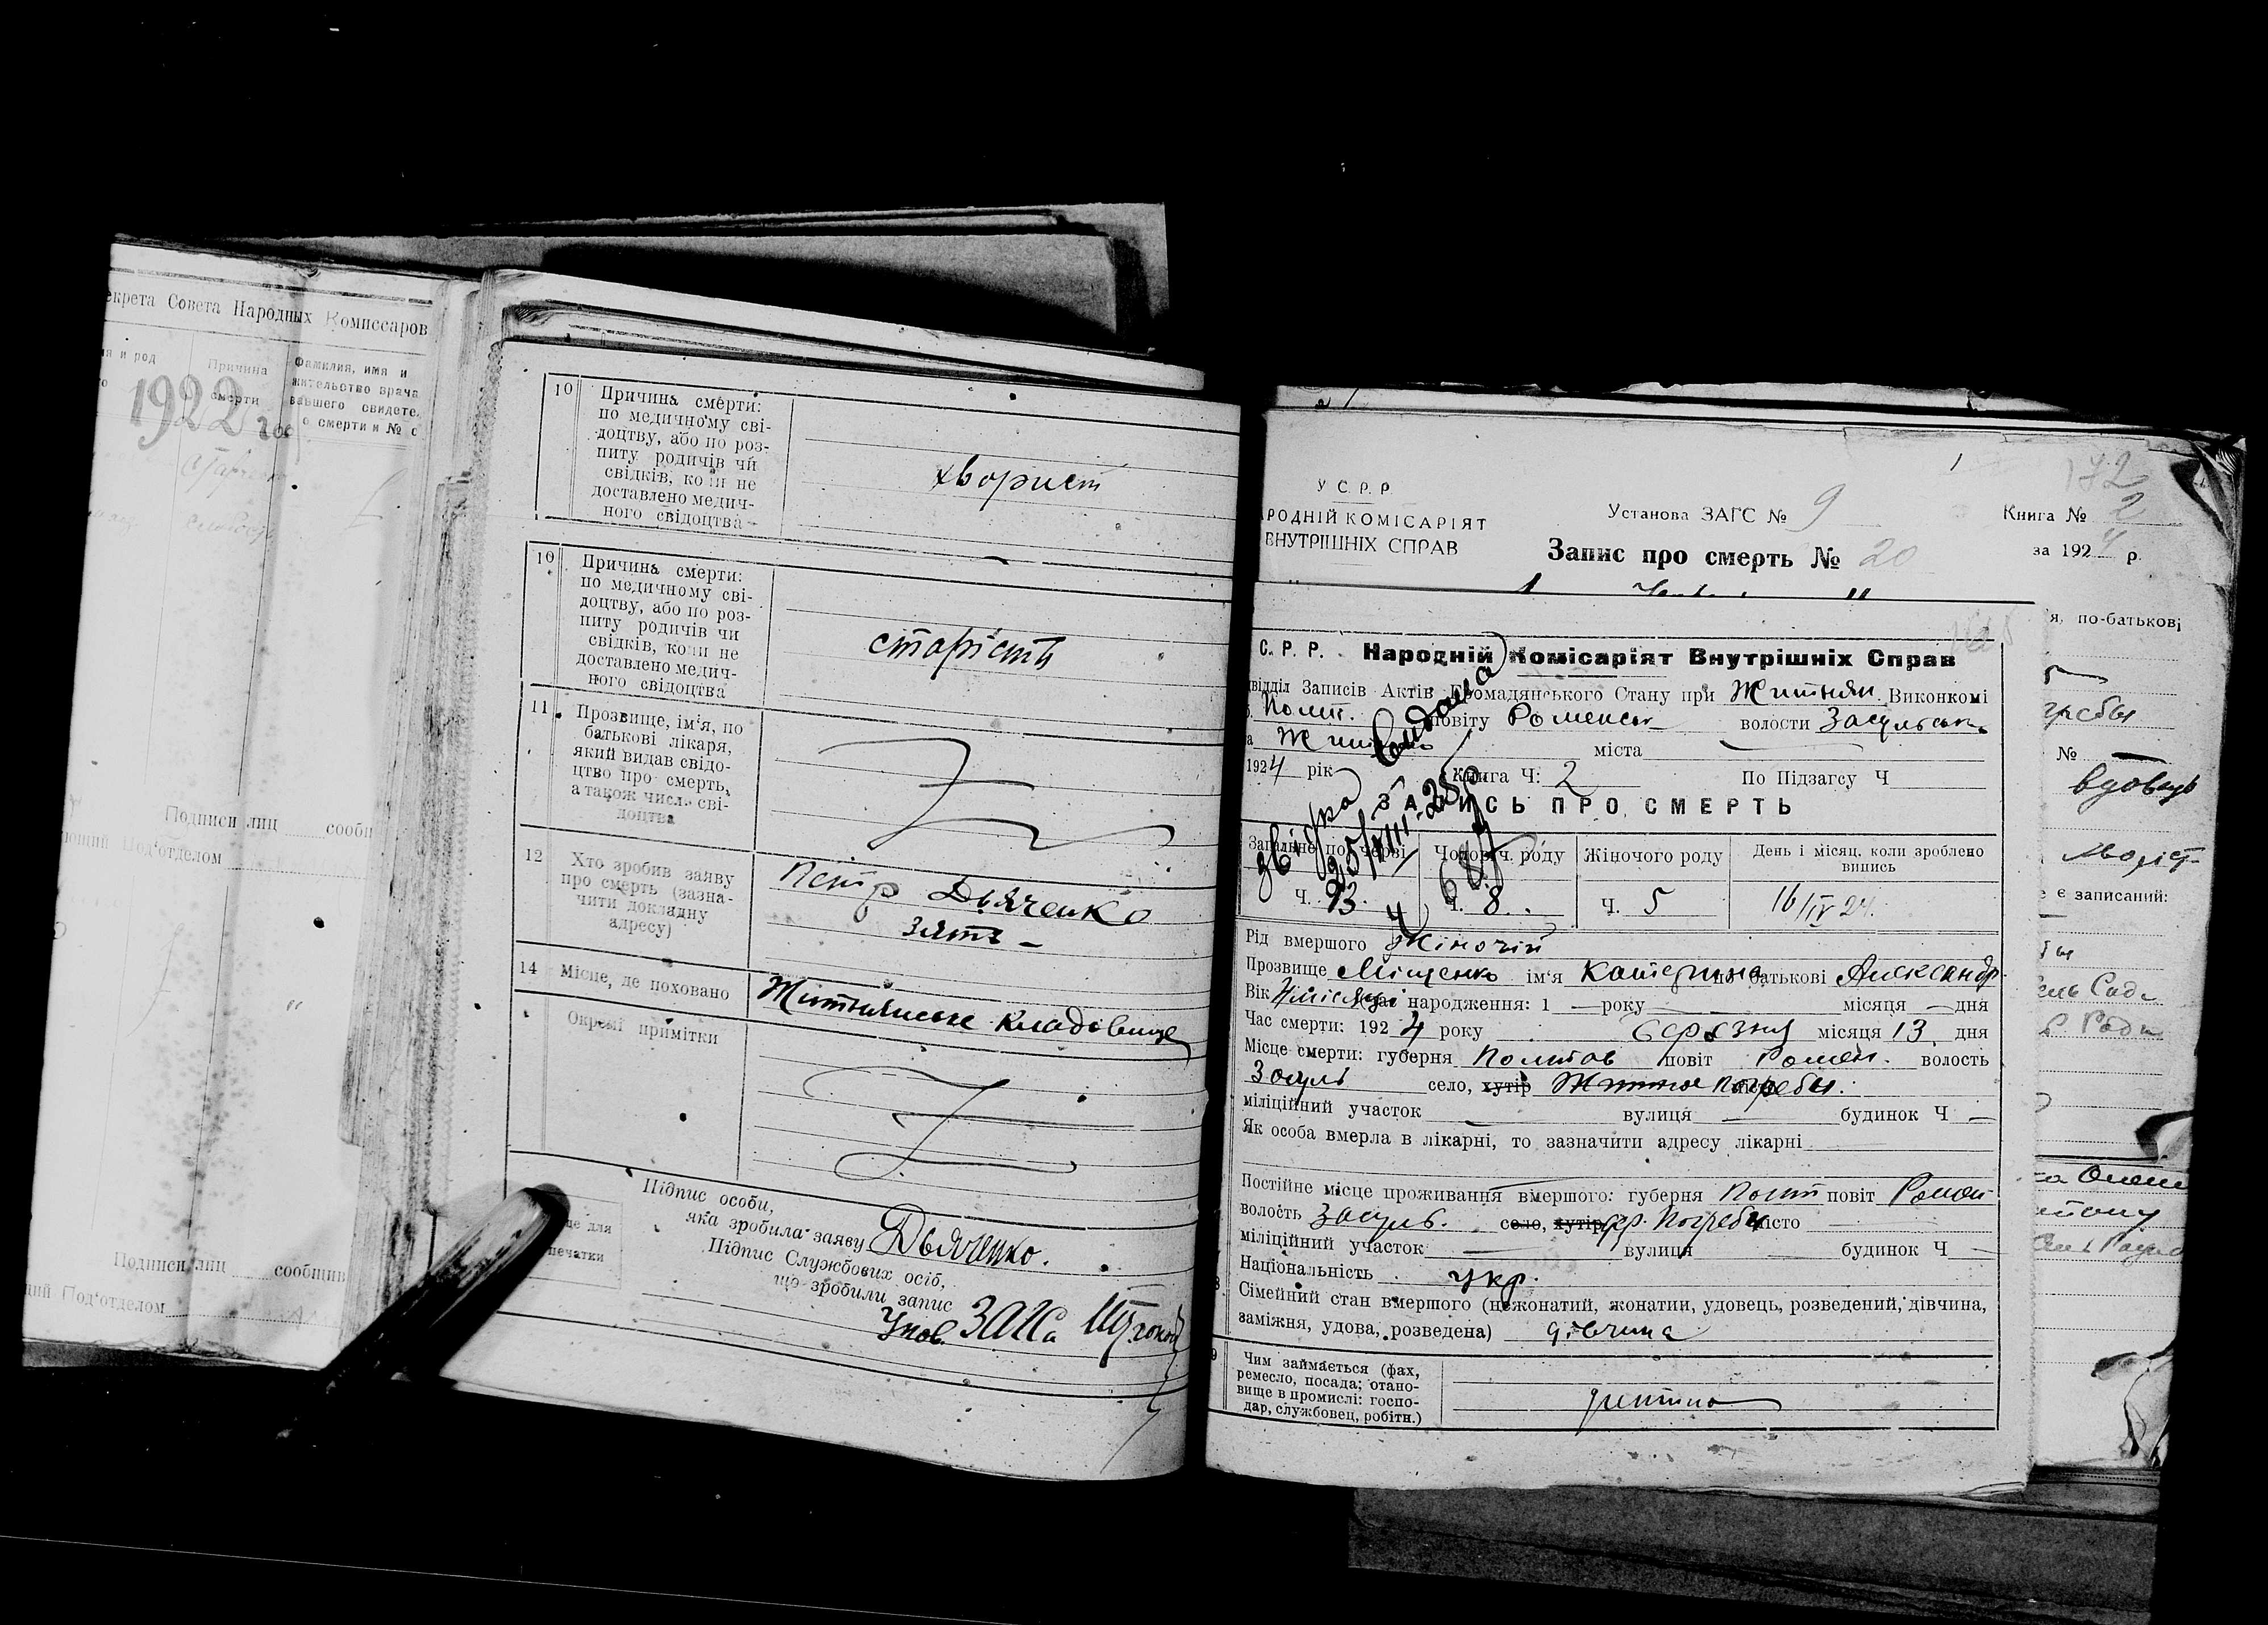 екрета Совета Народных Комиссаров
я и род
Причина
смерти
Фамилия, имя и
жительство врача
вавшего свидете
о смерти и № с
1922
Подписи лиц сооби
Под'отделом
Подписи лиц сообщив
щий Под'отделом
10 Причина смерти:
по медичному сві-
доцтву, або по роз-
питу родичів чи
свідків, коли не
доставлено медич-
ного свідоцтва
хворист
10 Причина смерти:
по медичному сві-
доцтву, або по роз-
питу родичів чи
свідків, коли не
доставлено медич-
ного свідоцтва
старість
11 Прозвище, ім'я, по
батькові лікаря,
який видав свідо-
цтво про смерть,
а також числ. сві-
доцтва
12 Хто зробив заяву
про смерть (зазна-
чити докладну
адресу)
Петр Дьяченко
зять –
14 Місце, де поховано
Житнянське кладовище
Окремі примітки
це для
печатки
Підпис особи,
яка зробила заяву Дьяченко.
Підпис Службових осіб,
що зробили запис
Упов. ЗАГСа
У С. Р. Р.
РОДНІЙ КОМІСАРІЯТ
ВНУТРІШНІХ СПРАВ
Установа ЗАГС № 9
Запис про смерть № 20
172
Книга № 2
за 1924 р.
С. Р. Р. Народній Комісаріят Внутрішніх Справ
відділ Записів Актів Громадянського Стану при Житнян. Виконкомі
Полт. повіту Роменськ волости Засульськ.
міста
1924 рік Книга Ч: 2 По Підзагсу Ч
ЗАПИСЬ ПРО СМЕРТЬ
Загальне по черзі Чоловіч. роду Жіночого роду День і місяц, коли зроблено
випись
Ч. 13. Ч. 8. Ч. 5 16/IV 24.
Рід вмершого жіночій
Прозвище Міщенко ім'я Катерина по батькові Александр
Вік 4 місяці Час народження: 1 — року — місяця — дня
Час смерти: 1924 року березня місяця 13 дня
Місце смерти: губерня Полтав повіт Ромен. волость
Засуль село, хутір Житное Погребы.
міліційний участок вулиця — будинок Ч —
Як особа вмерла в лікарні, то зазначити адресу лікарні
Постійне місце проживання вмершого: губерня Полт повіт Ромен
волость Засуль. село, хутір Погребы місто
міліційний участок вулиця будинок Ч
Національність укр.
Сімейний стан вмершого (нежонатий, жонатий, удовець, розведений, дівчина,
заміжня, удова, розведена) дівчина
9 Чим займається (фах,
ремесло, посада; стано-
вище в промислі: госпо-
дар, службовец, робітн.)
дитина
я, по-батькові
№
вдовець
є записаний: